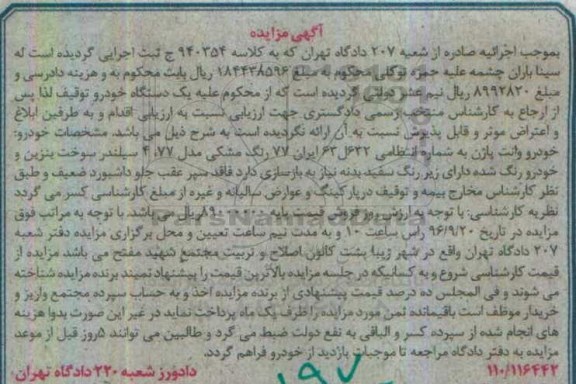 آگهی مزایده
بموجب اجرائیه صادره از شعبه ۲۰۷ دادگاه تهران که به کلاسه ۹۴۰۳۵۴ ج ثبت اجرایی گردیده است له
سینا باران چشمه علیه حمزه توکلی محکوم به مبلغ ۱۸۴۴۳۸۵۹۶ ریال بابت محکوم به و هزینه دادرسی و
مبلغ ۸۹۹۲۸۲۰ ریال نیم عشر دولتی گردیده است که از محکوم علیه یک دستگاه خودرو توقیف لذا پس
از ارجاع به کارشناس منتخب رسمی دادگستری جهت ارزیابی نسبت به ارزیابی اقدام و به طرفین ابلاغ
و اعتراض موثر و قابل پذیرش نسبت به آن ارائه نگردیده است به شرح ذیل می باشد. مشخصات خودرو:
خودرو وانت پاژن به شماره انتظامی ۶۳۲ل۶۳ ایران ۷۷ رنگ مشکی مدل ۷۷، ۴ سیلندر سوخت بنزین و
خودرو رنگ شده دارای زیر رنگ سفید بدنه نیاز به بازسازی دارد فاقد سپر عقب جلو داشبورد ضعیف و طبق
نظر کارشناس مخارج بیمه و توقیف در پارکینگ و عوارض سالیانه و غیره از مبلغ کارشناسی کسر می گردد
نظریه کارشناسی: با توجه به ارزش روز فروش ریال می باشد. با توجه به مراتب فوق
مزایده در تاریخ ۹۶/۹/۲۰ راس ساعت ۱۰ و به مدت نیم ساعت تعیین و محل برگزاری مزایده دفتر شعبه
۲۰۷ دادگاه تهران واقع در شهر زیبا پشت کانون اصلاح و تربیت مجتمع شهید مفتح می باشد مزایده از
قیمت کارشناسی شروع و به کسانیکه در جلسه مزایده بالاترین قیمت را پیشنهاد نمیند برنده مزایده شناخته
می شوند و فی المجلس ده درصد قیمت پیشنهادی از برنده مزایده اخذ و به حساب سپرده مجتمع واریز و
خریدار موظف است باقیمانده ثمن مورد مزایده را ظرف یک ماه پرداخت نماید در غیر این صورت بدوا هزینه
های انجام شده از سپرده کسر و الباقی به نفع دولت ضبط می گرد و طالبین می توانند ۵روز قبل از موعد
مزایده به دفتر دادگاه مراجعه تا موجبات بازدید از خودرو فراهم گردد.
۱۱۰/۱۱۶۴۴۲ دادورز شعبه ۲۲۰ دادگاه تهران